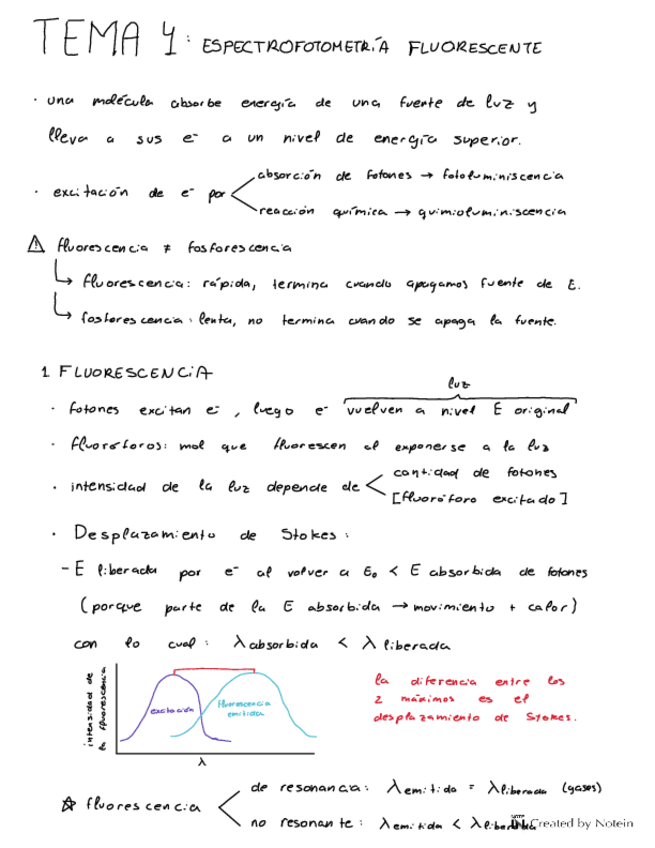 TEMA 4: ESPECTROFOTOMETRÍA FLUORESCENTE
· una molécula absorbe energía de una fuente de luz y
lleva a sus e⁻ a un nivel de energía superior.
· excitación de e⁻ por
absorción de fotones → fotoluminiscencia
reacción química → quimioluminiscencia
⚠ fluorescencia ≠ fosforescencia
↳ fluorescencia: rápida, termina cuando apagamos fuente de E.
↳ fosforescencia: lenta, no termina cuando se apaga la fuente.
1 FLUORESCENCIA
luz
· fotones excitan e⁻, luego e⁻ vuelven a nivel E original
· fluoróforos: mol que fluorescen al exponerse a la luz
· intensidad de la luz depende de
cantidad de fotones
[fluoróforo excitado]
· Desplazamiento de Stokes:
- E liberada por e⁻ al volver a E₀ < E absorbida de fotones
(porque parte de la E absorbida → movimiento + calor)
con lo cual: λ absorbida < λ liberada
intensidad de
la fluorescencia
excitación
fluorescencia
emitida
λ
la diferencia entre los
2 máximos es el
desplazamiento de Stokes.
☆ fluorescencia
de resonancia: λ emitida = λ liberada (gases)
no resonante: λ emitida < λ liberada
Created by Notein